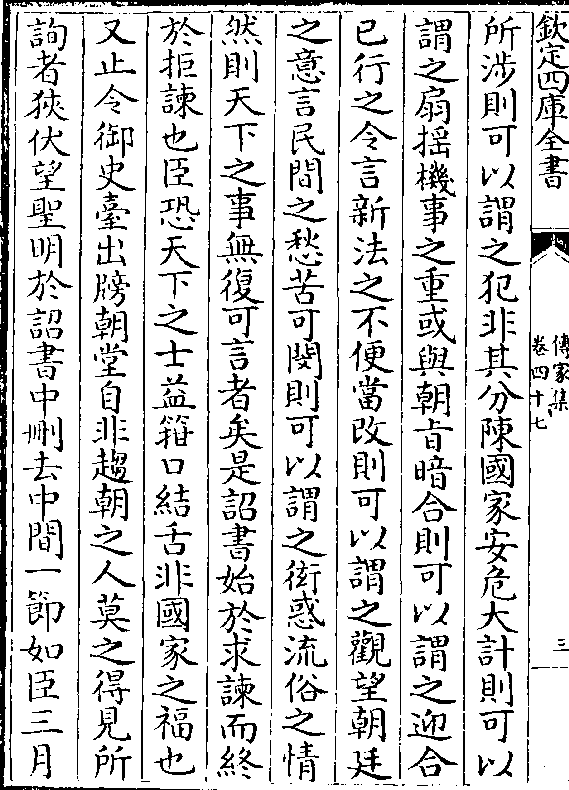 欽定四庫全書
傳家集
卷四十七
三
所涉則可以謂之犯非其分陳國家安危大計則可以
謂之扇揺機事之重或與朝㫖暗合則可以謂之迎合
已行之令言新法之不便當改則可以謂之觀望朝廷
之意言民間之愁苦可閔則可以謂之衒惑流俗之情
然則天下之事無復可言者矣是詔書始於求諫而終
於拒諫也臣恐天下之士益箝口結舌非國家之福也
又止令御史臺出牓朝堂自非趨朝之人莫之得見所
詢者狹伏望聖明於詔書中刪去中間一節如臣三月